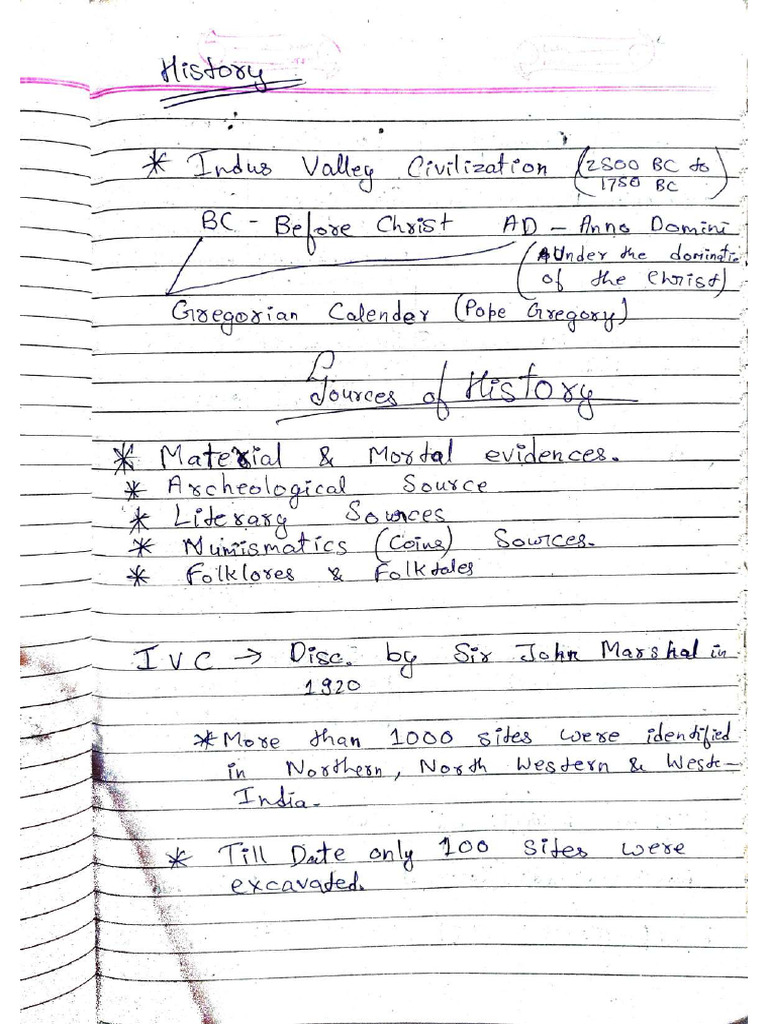 History
* Indus Valley Civilization (2500 BC to
1750 BC)
BC - Before Christ AD - Anno Domini
(Under the dominatio
of the Christ)
Gregorian Calender (Pope Gregory)
Sources of History
* Material & Mortal evidences.
* Archeological Source
* Literary Sources
* Numismatics (Coins) Sources.
* Folklores & Folktales
IVC → Disc. by Sir John Marshal in
1920
* More than 1000 sites were identified
in Northern, North Western & Weste-
India.
* Till Date only 100 sites were
excavated.